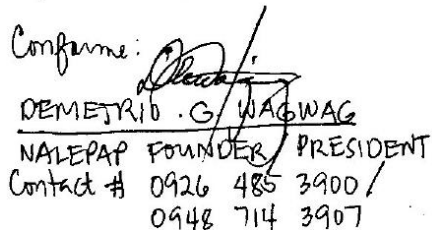 Conforme:
DEMETRIO . G WAGWAG
NALEPAP FOUNDER / PRESIDENT
Contact # 0926 485 3900 /
0948 714 3907